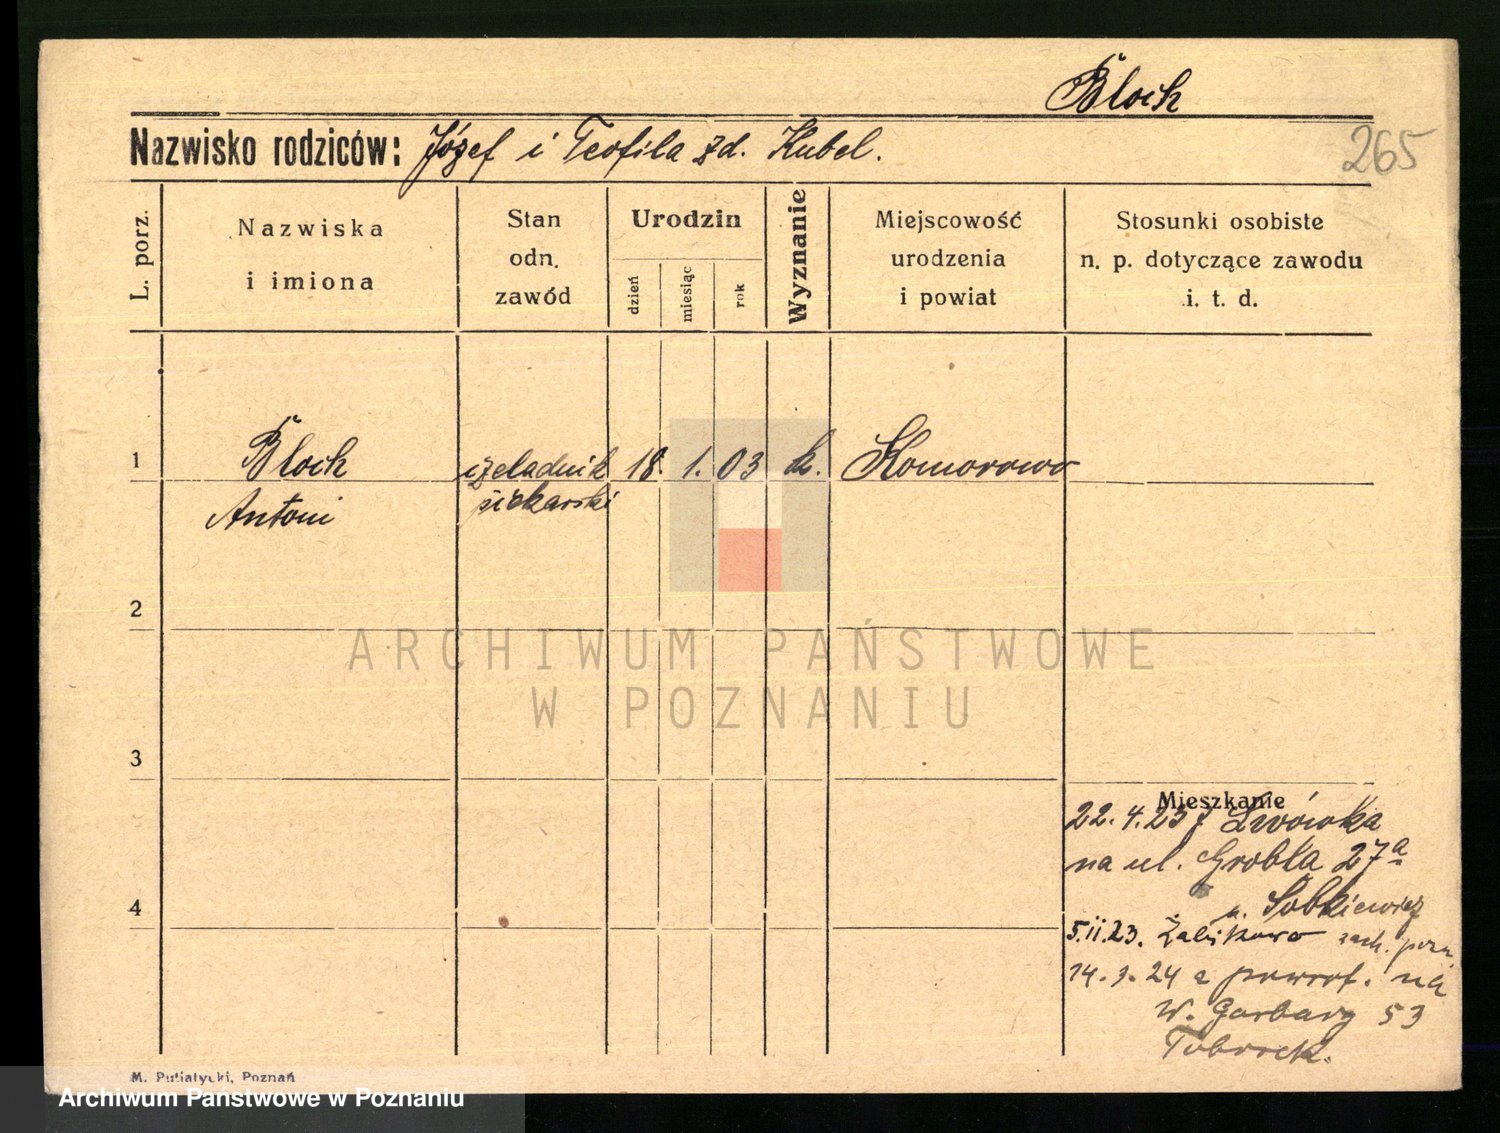 Bloch
Nazwisko rodziców: Józef i Teofila zd. Kubel.
265
L. porz.
Nazwiska
i imiona
Stan
odn.
zawód
Urodzin
dzień
miesiąc
rok
Wyznanie
Miejscowość
urodzenia
i powiat
Stosunki osobiste
n. p. dotyczące zawodu
i. t. d.
1
Bloch
Antoni
czeladnik
piekarski
18. 1. 03
k.
Komorowo
2
ARCHIWUM PAŃSTWOWE
W POZNANIU
3
Mieszkanie
22.4.23 z Lwówka
na ul. Grobla 27a
u. Sobkiewicz
4
5.11.23. Żabikowo zach. pozn.
14.3.24 z powrot. na
W. Garbary 53
M. Putiatycki, Poznań
Archiwum Państwowe w Poznaniu